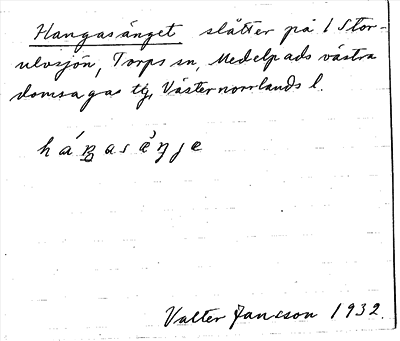 Hangasänget slåtter på 1 Stor-
ulvsjön, Torps sn, Medelpads västra
domsagas tg, Västernorrlands l.
háŋasǟŋje
Valter Jansson 1932.